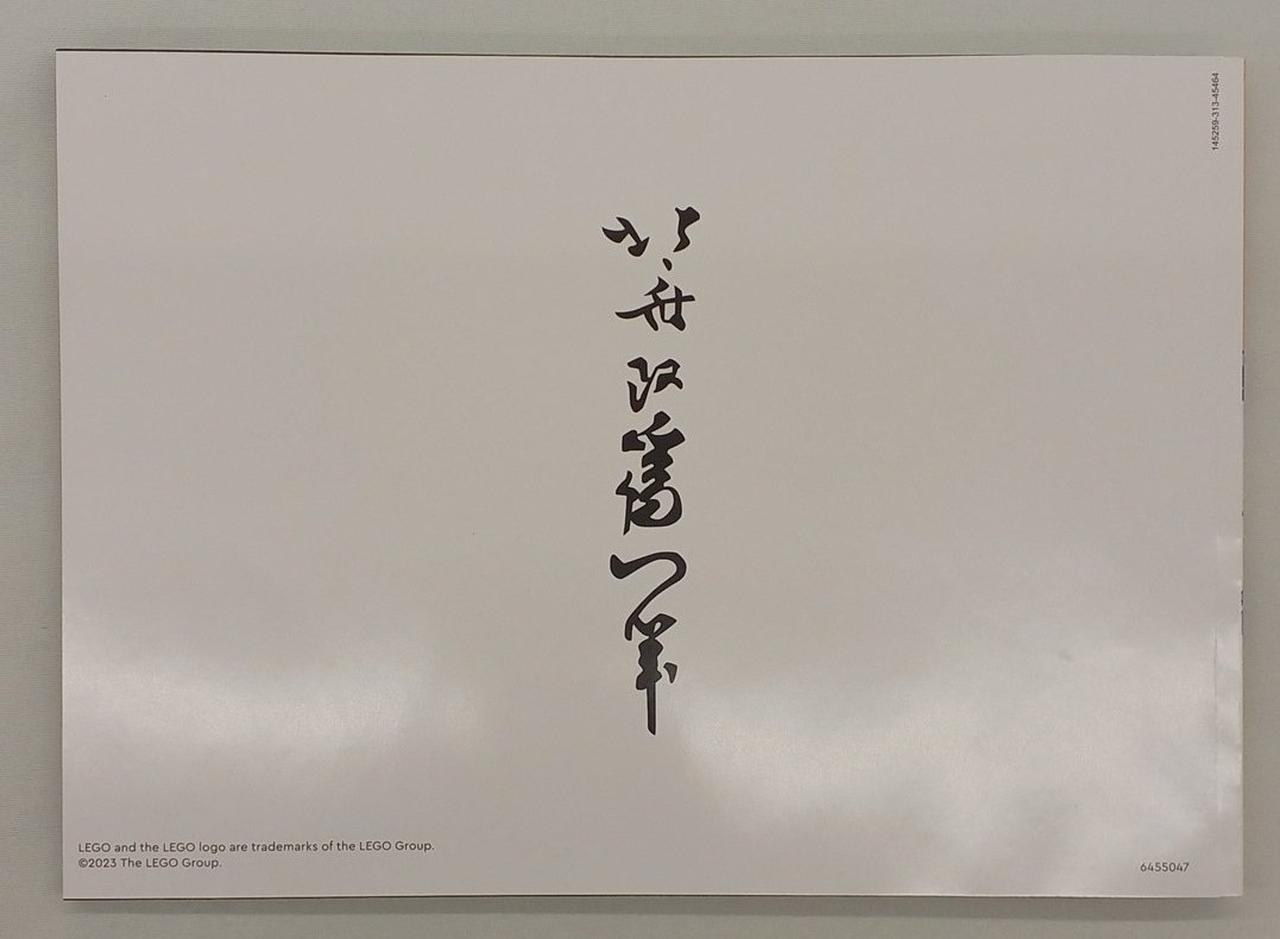 145259-313-45464
北斎改為一筆
LEGO and the LEGO logo are trademarks of the LEGO Group.
©2023 The LEGO Group.
6455047